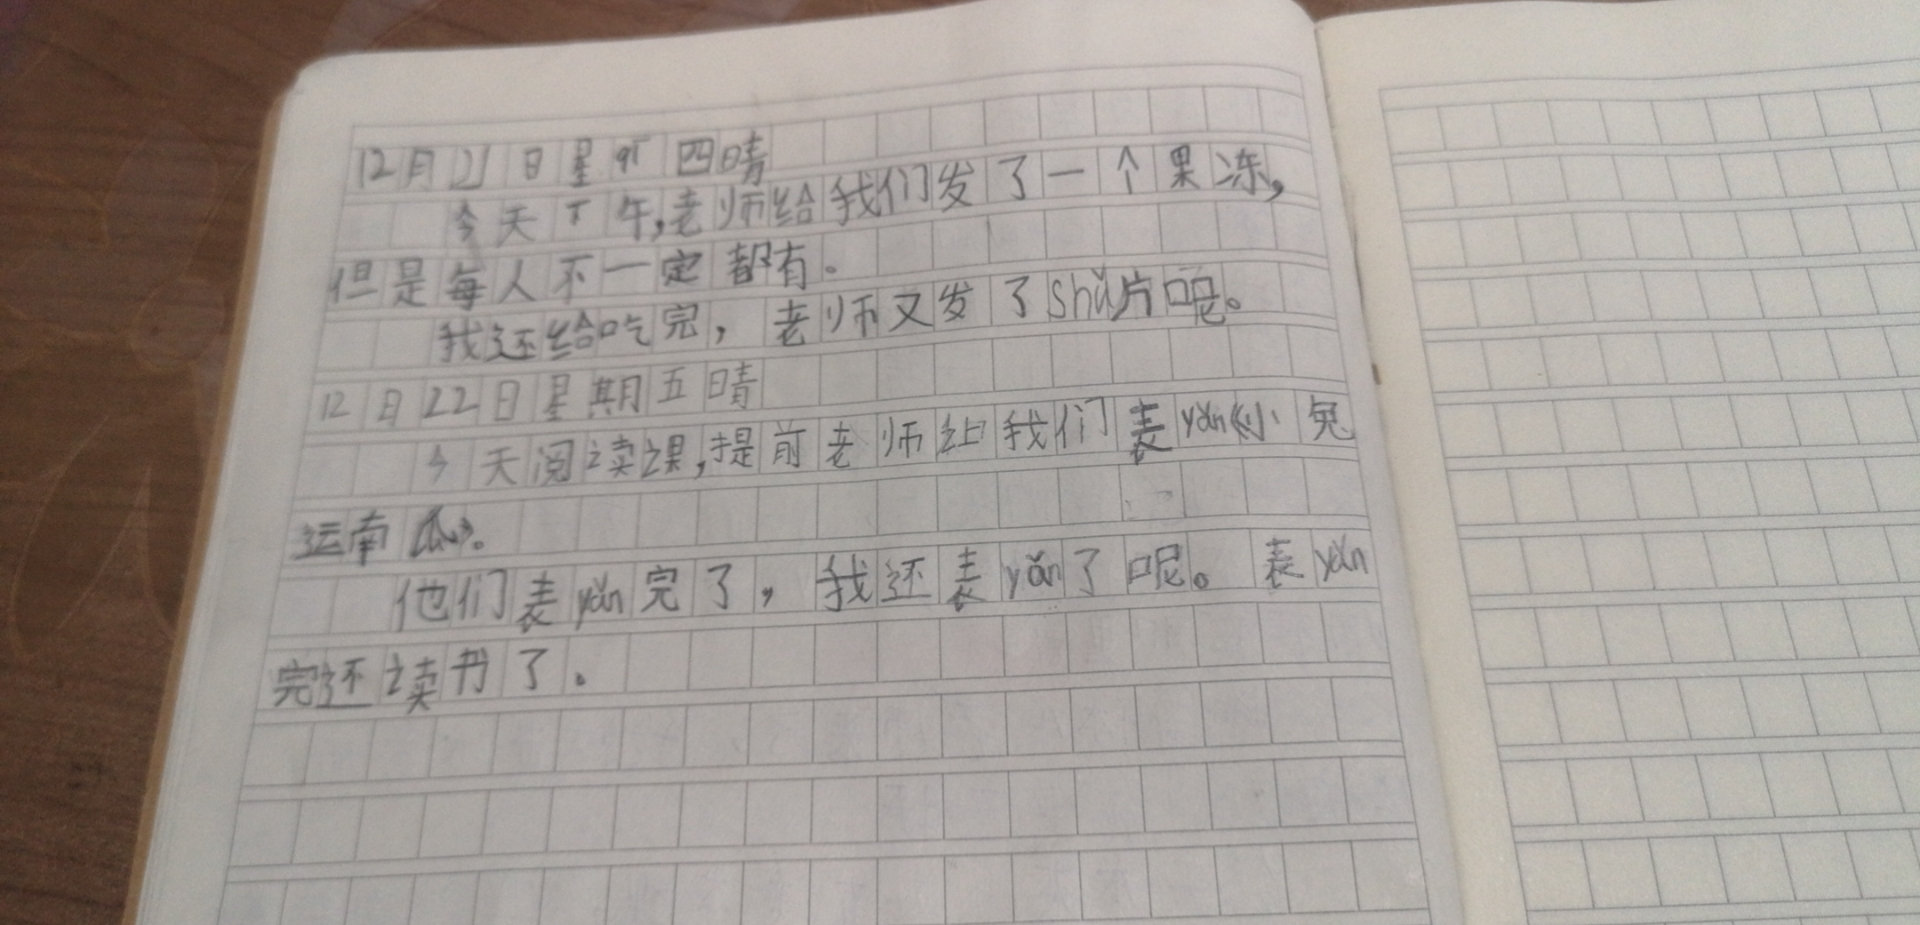 12月21日星期四晴
今天下午,老师给我们发了一个果冻,
但是每人不一定都有。
我还给吃完，老师又发了shǔ片呢。
12月22日星期五晴
今天阅读课,提前老师让我们表yǎn《小兔
运南瓜》。
他们表yǎn完了，我还表yǎn了呢。表yǎn
完还读书了。